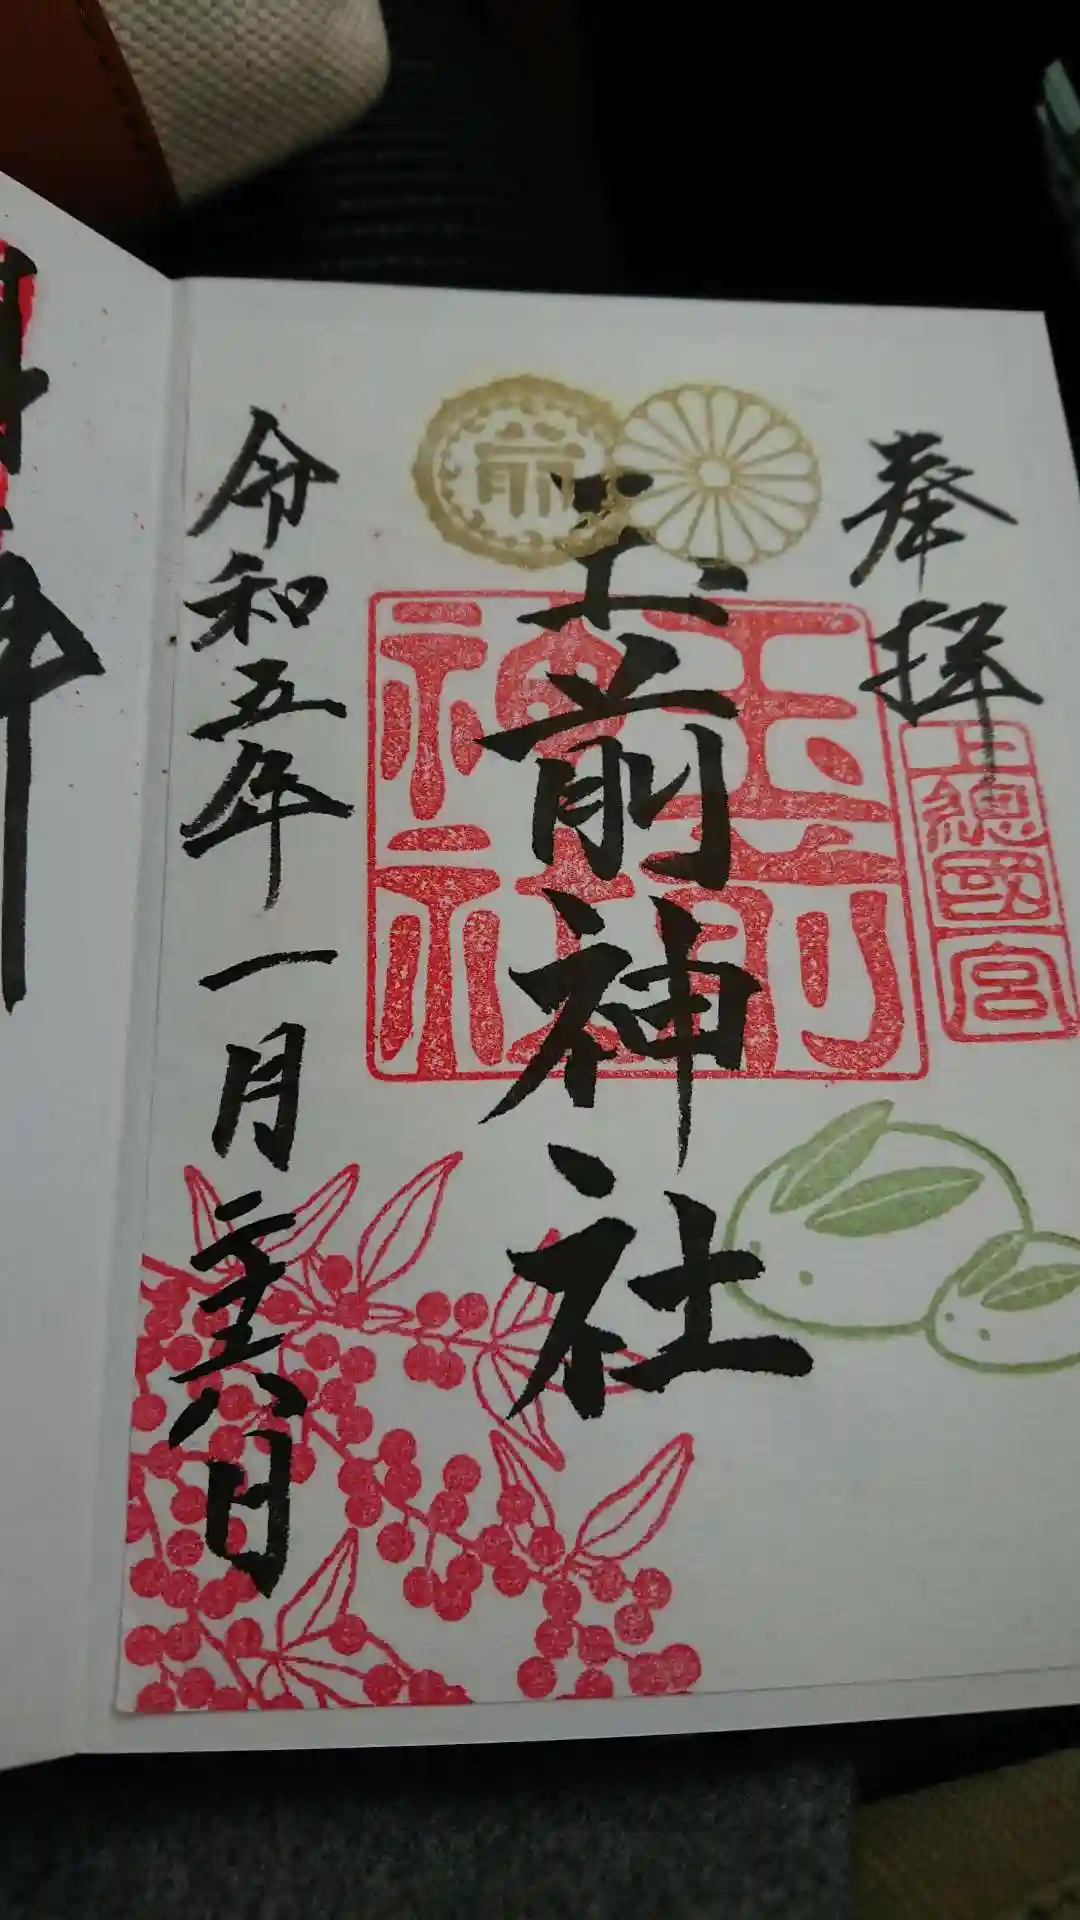 奉拝
上總國一宮
前
玉前神社
玉前神社
令和五年一月二十八日